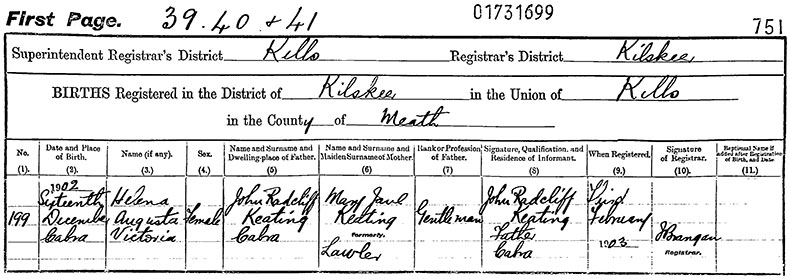 First Page. 39. 40 + 41 01731699 751
Superintendent Registrar's District Kells Registrar's District Kilskee
BIRTHS Registered in the District of Kilskee in the Union of Kells
in the County of Meath
No. Date and Place of Birth. Name (if any). Sex. Name and Surname and Dwelling-place of Father. Name and Surname and Maiden Surname of Mother. Rank or Profession of Father. Signature, Qualification, and Residence of Informant. When Registered. Signature of Registrar. Baptismal Name if added after Registration of Birth, and Date.
(1). (2). (3). (4). (5) (6) (7) (8) (9.) (10). (11.)
1902
Sixteenth Helena John Radcliff Mary Jane John Radcliff Third
199 December Augusta Female Keating Keating Gentleman Keating February
Cabra Victoria Cabra Formerly. Father 1903 JBrangan
Lawler Cabra Registrar.